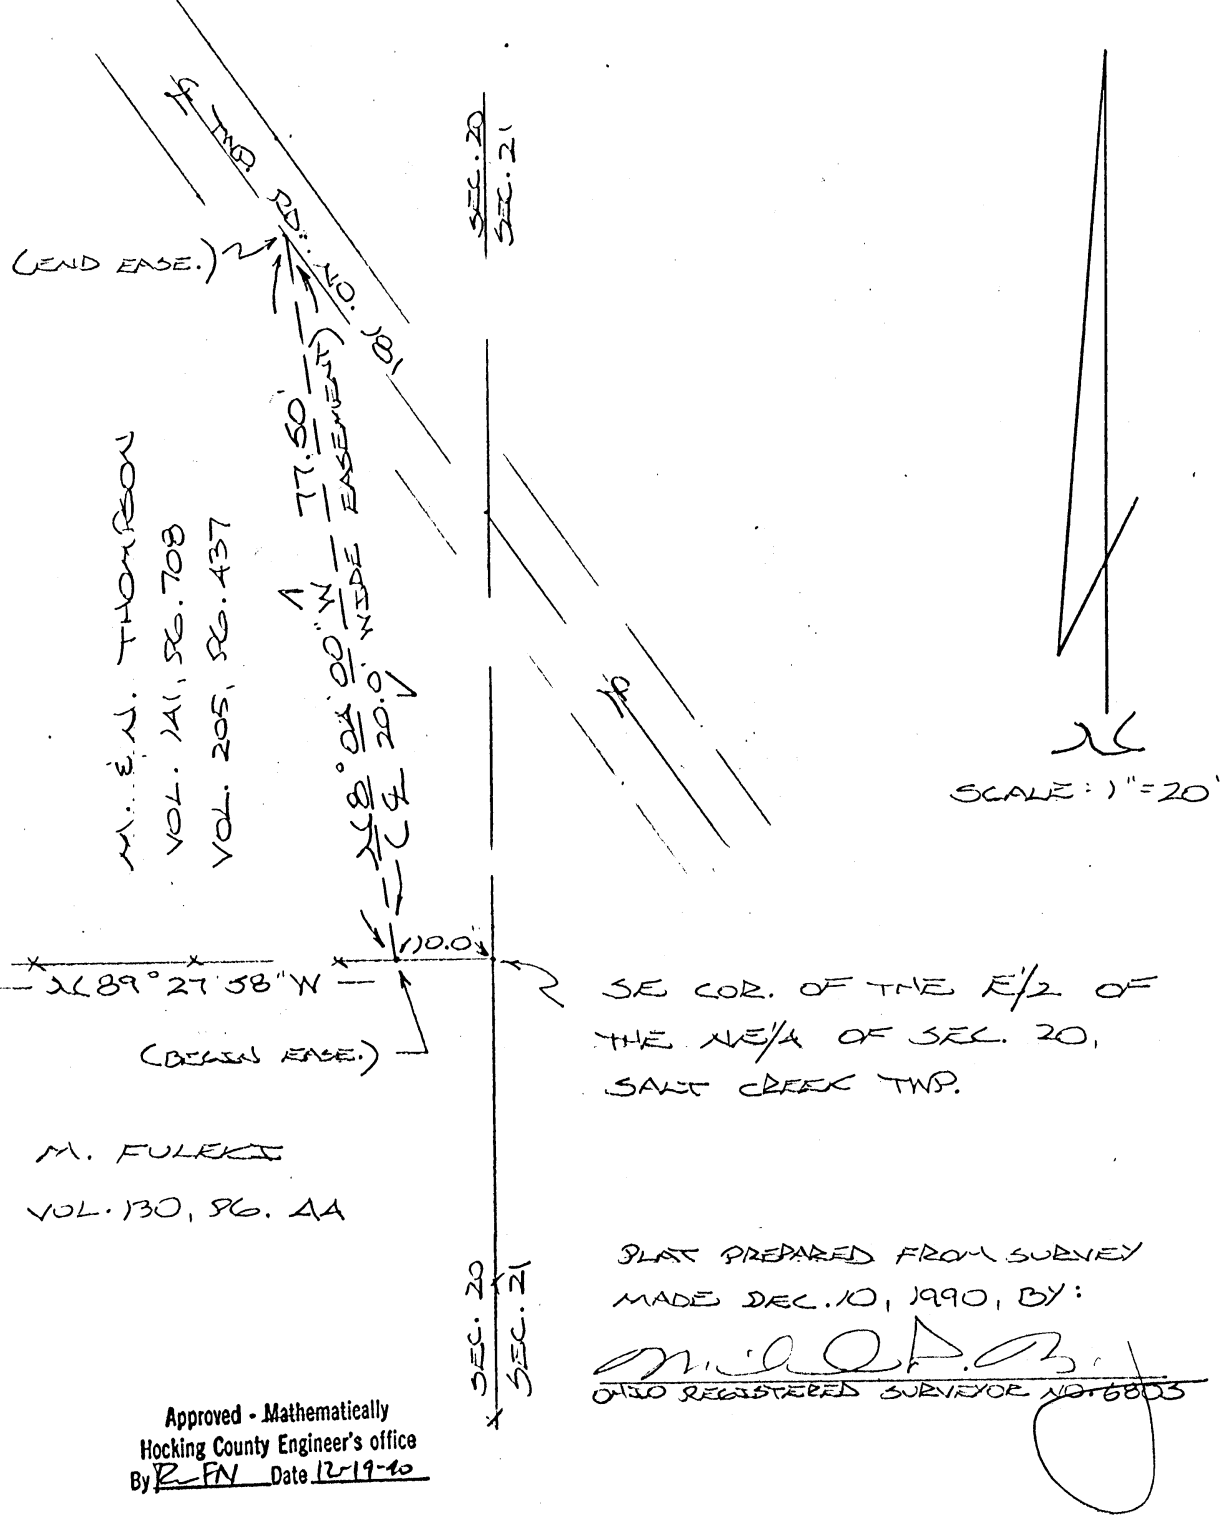 ℄ TWP. RD. NO. 181
SEC. 20
SEC. 21
(END EASE.)
N 8° 04' 00" W 77.50'
(℄ 20.0' WIDE EASEMENT)
M. & N. THOMPSON
VOL. 141, PG. 708
VOL. 205, PG. 437
℄
N
SCALE: 1"=20'
110.0'
N 89° 27' 58" W
(BEGIN EASE.)
SE COR. OF THE E1/2 OF
THE NE1/4 OF SEC. 20,
SALT CREEK TWP.
M. FULEKI
VOL. 130, PG. 44
SEC. 20
SEC. 21
PLAT PREPARED FROM SURVEY
MADE DEC. 10, 1990, BY:
OHIO REGISTERED SURVEYOR NO. 6803
Approved - Mathematically
Hocking County Engineer's office
By Date 12-19-90